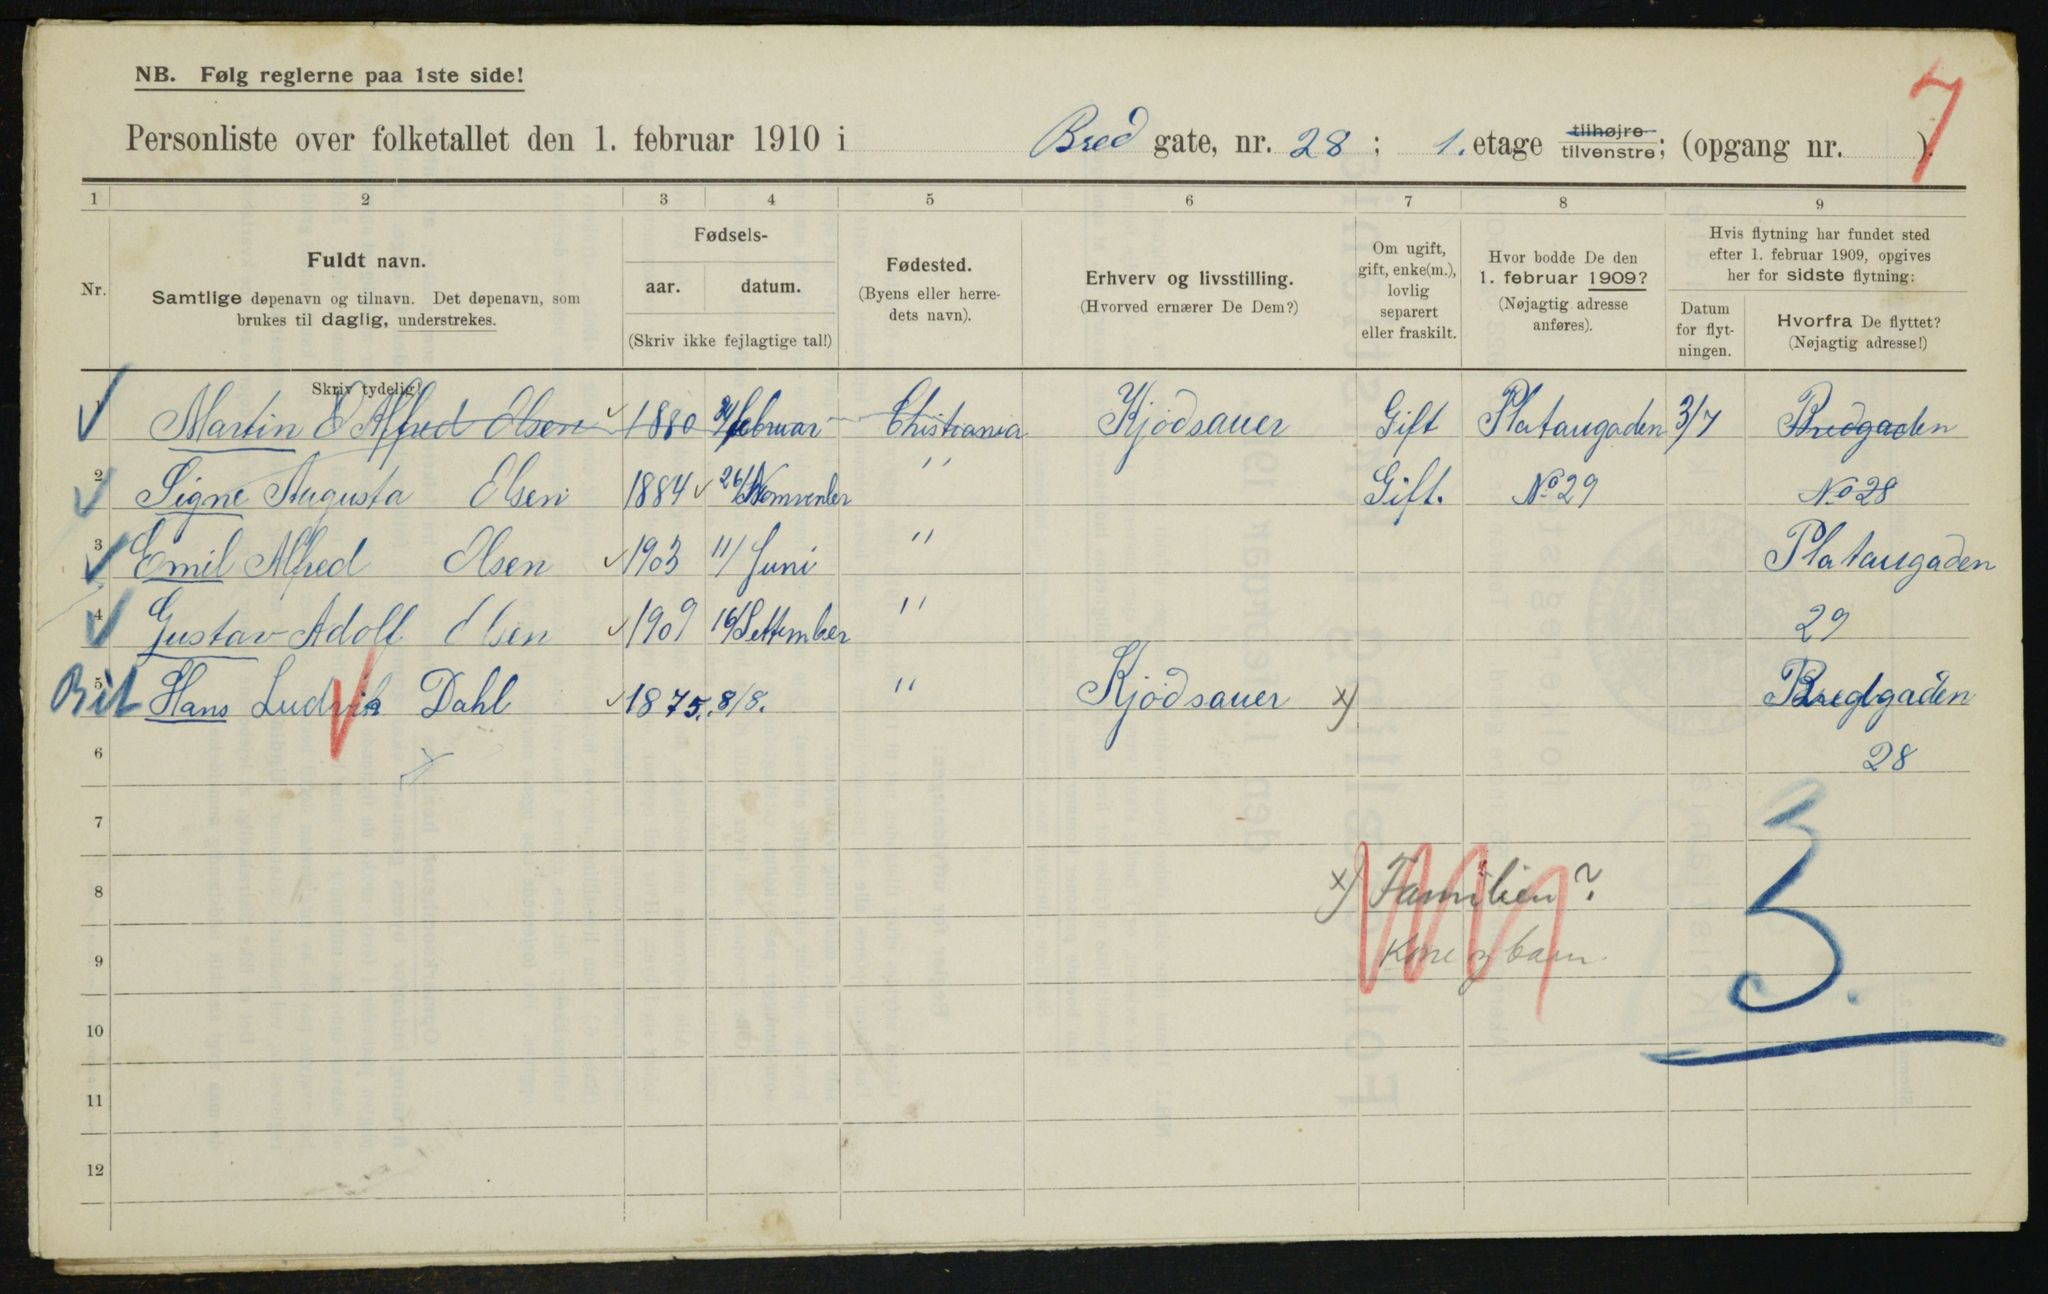 NB. Følg reglerne paa 1ste side!
7
Personliste over folketallet den 1. februar 1910 i Bred gate, nr. 28; 1. etage tilhøjre tilvenstre; (opgang nr. ).
1 2 3 4 5 6 7 8 9
Nr.
Fuldt navn.
Samtlige døpenavn og tilnavn. Det døpenavn, som
brukes til daglig, understrekes.
Skriv tydelig!
Fødsels-
aar. datum.
(Skriv ikke fejlagtige tal!)
Fødested.
(Byens eller herre-
dets navn).
Erhverv og livsstilling.
(Hvorved ernærer De Dem?)
Om ugift,
gift, enke(m.),
lovlig
separert
eller fraskilt.
Hvor bodde De den
1. februar 1909?
(Nøjagtig adresse
anføres).
Hvis flytning har fundet sted
efter 1. februar 1909, opgives
her for sidste flytning:
Datum
for flyt-
ningen.
Hvorfra De flyttet?
(Nøjagtig adresse!)
1 Martin Alfred Olsen 1880 februar Christiania Kjödsauer Gift Plataugaden 3/7 Bredgaden
2 Signe Augusta Olsen 1884 26/ Nomvenber " Gift. No 29 No 28
3 Emil Alfred Olsen 1903 11/ Juni " Plataugaden
4 Gustav Adolf Olsen 1909 16/ Settember " 29
Bit 5 Hans Ludvik Dahl 1875. 8/8. " Kjödsauer x) Bredgaden
6 28
7
8 x) Familien?
9 Kone og barn.
3.
10
11
12